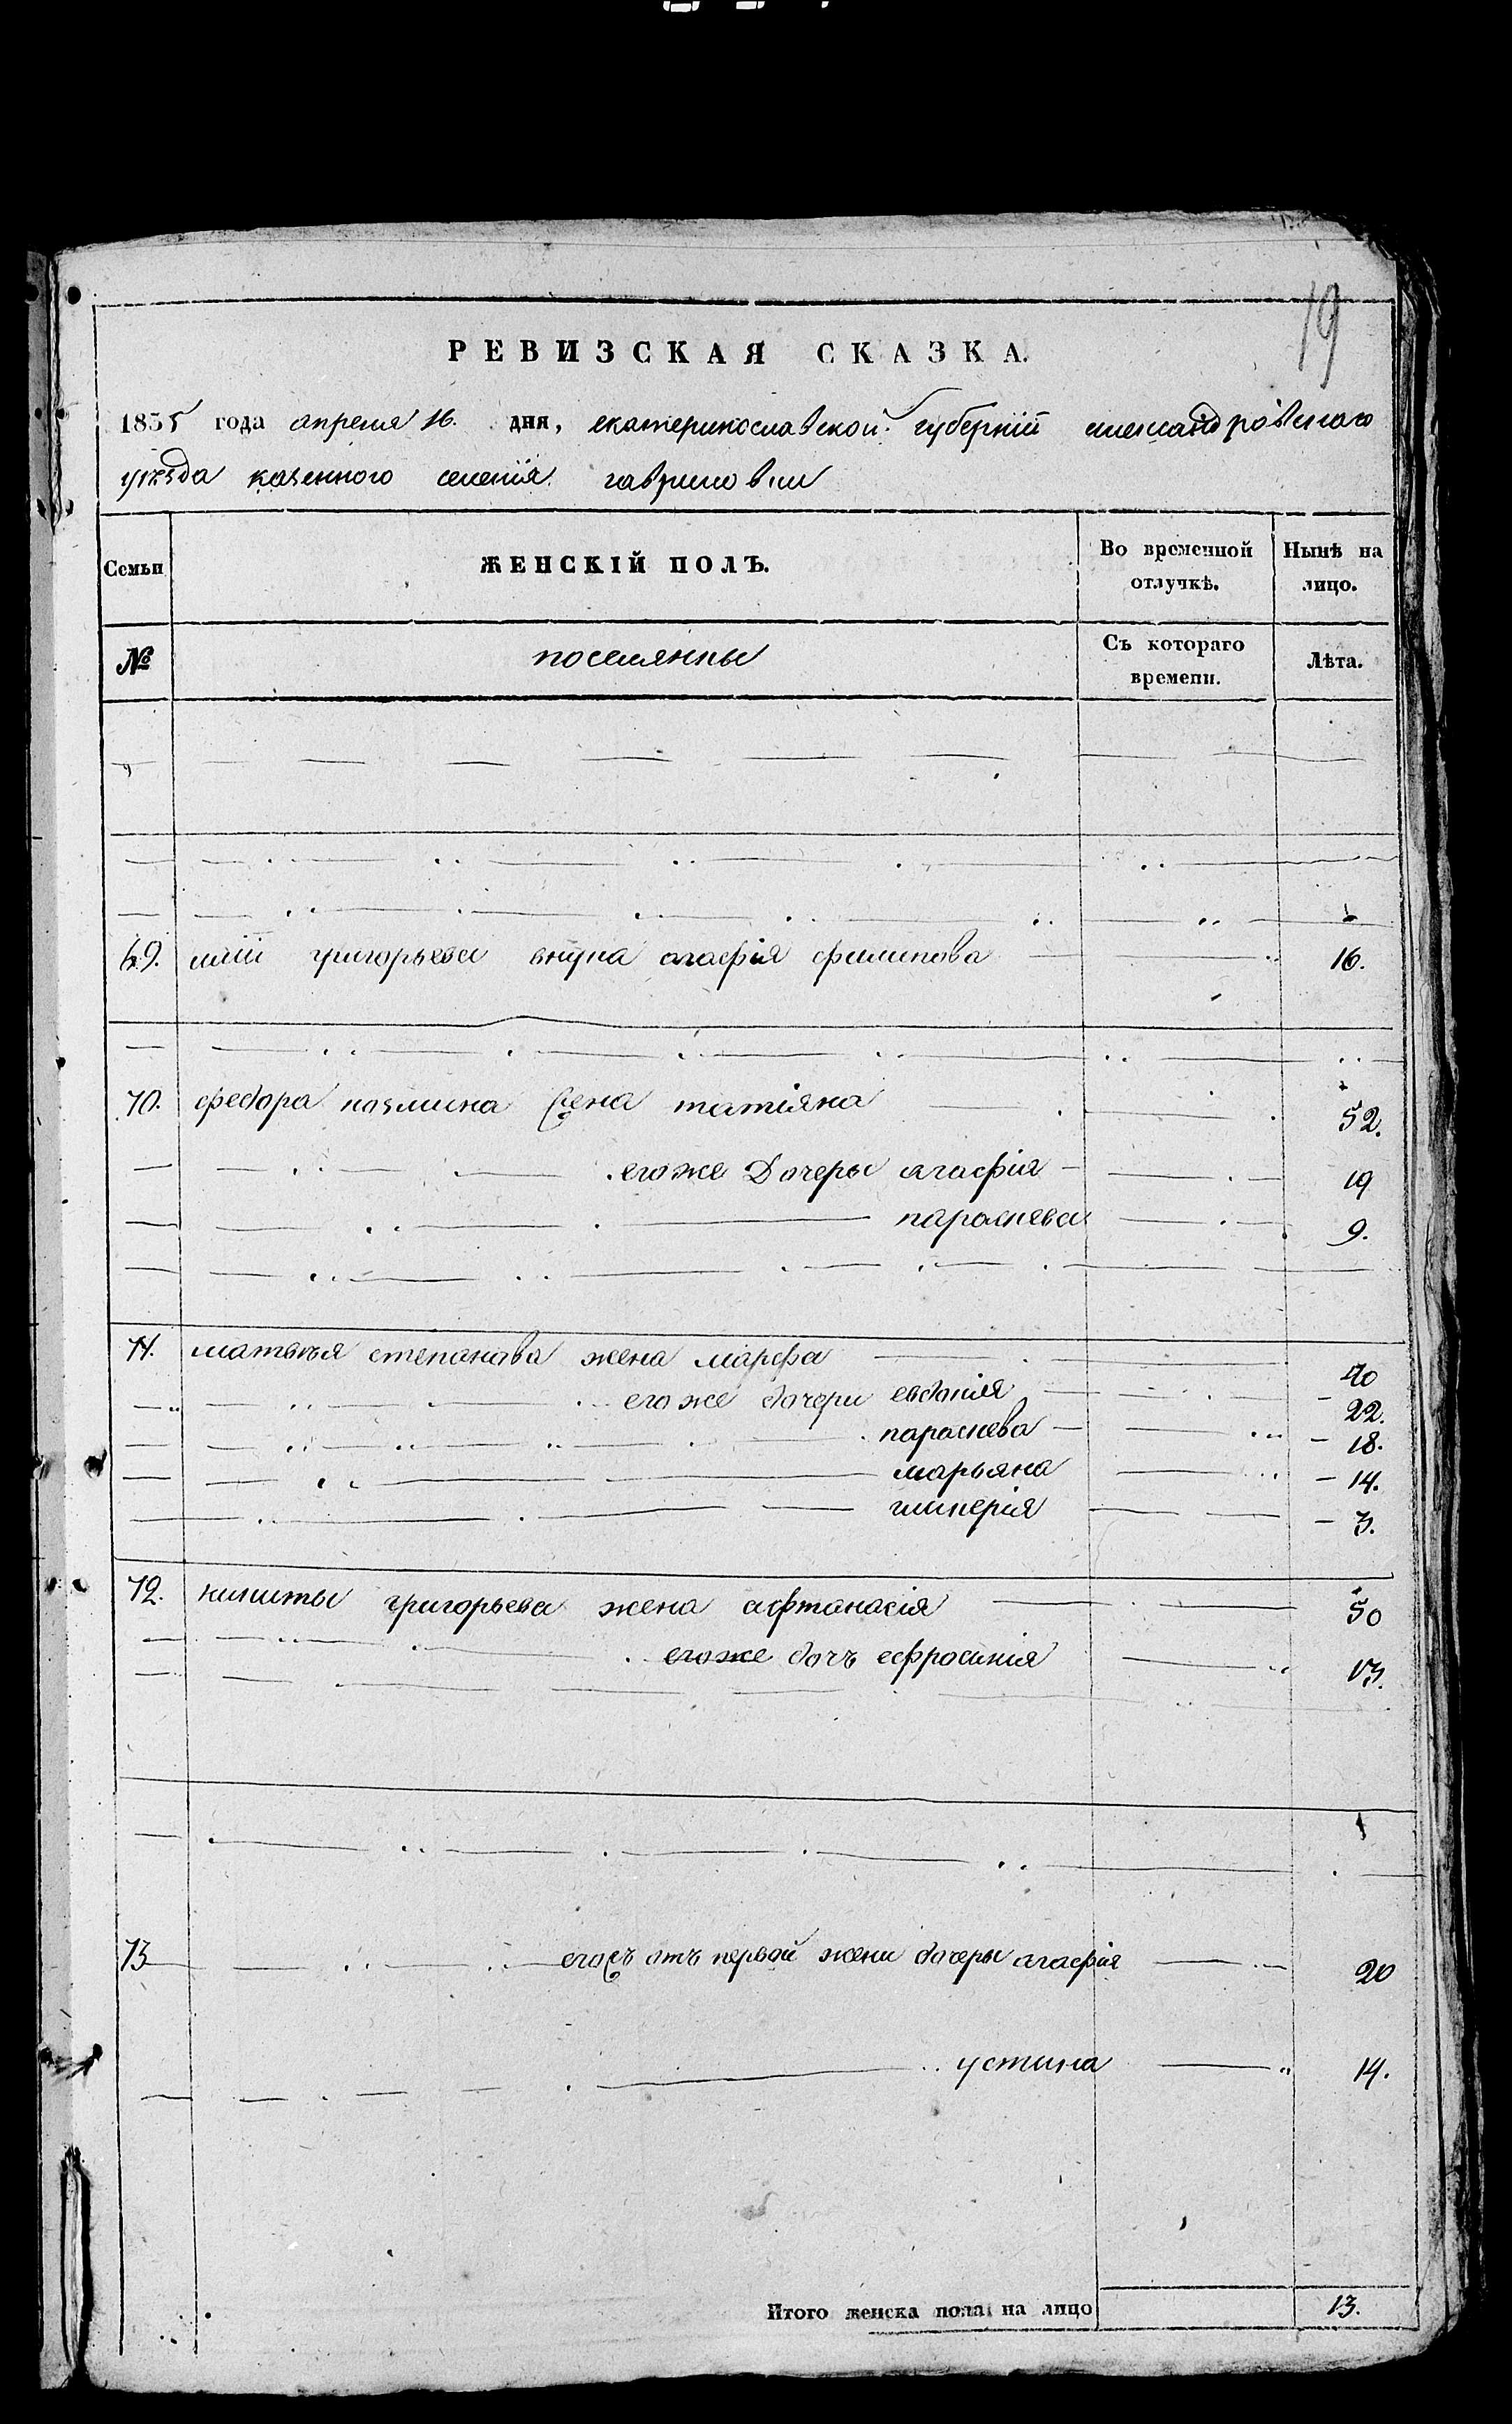 19
РЕВИЗСКАЯ СКАЗКА.
1835 года апреля 16. дня, екатеринославской губерніи александровскаго
уѣзда казенного селенія гавриловки
Семьи
ЖЕНСКІЙ ПОЛЪ.
Во временной отлучкѣ.
Нынѣ на лицо.
№
поселянны
Съ котораго времени.
Лѣта.
69. иліи григорьева внука агафія филипова 16.
70. федора козмина жена татіяна 52.
егоже дочеры агафія 19
параскева 9.
71. матвѣя степанова жена марфа 40
его же дочери евдокія 22.
параскева 18.
марьяна 14.
гликерія 3.
72. никиты григорьева жена афтанасія 50
егоже дочъ ефросинія 13.
73 егожъ отъ первой жени дочеры агафія 20
устина 14.
Итого женска пола на лицо 13.